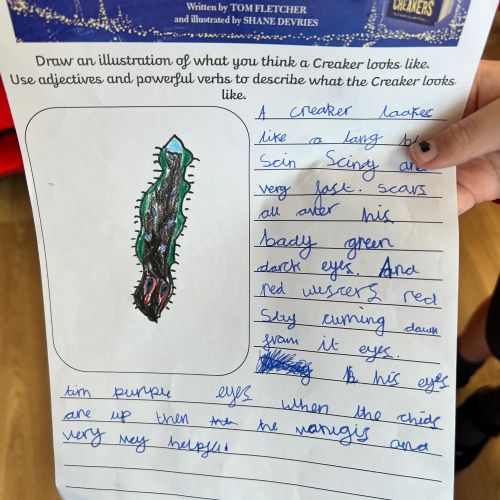 Written by TOM FLETCHER
and illustrated by SHANE DEVRIES
CREAKERS
Draw an illustration of what you think a Creaker looks like.
Use adjectives and powerful verbs to describe what the Creaker looks
like.
A creaker laakes
like a lang
Scin Sciny and
very fast. Scars
all aver his
bady green
darck eyes. And
red wiscers red
Slay runing dawn
fram it eyes.
his eyes
tirn purple eyes when the chids
are up then the and
very